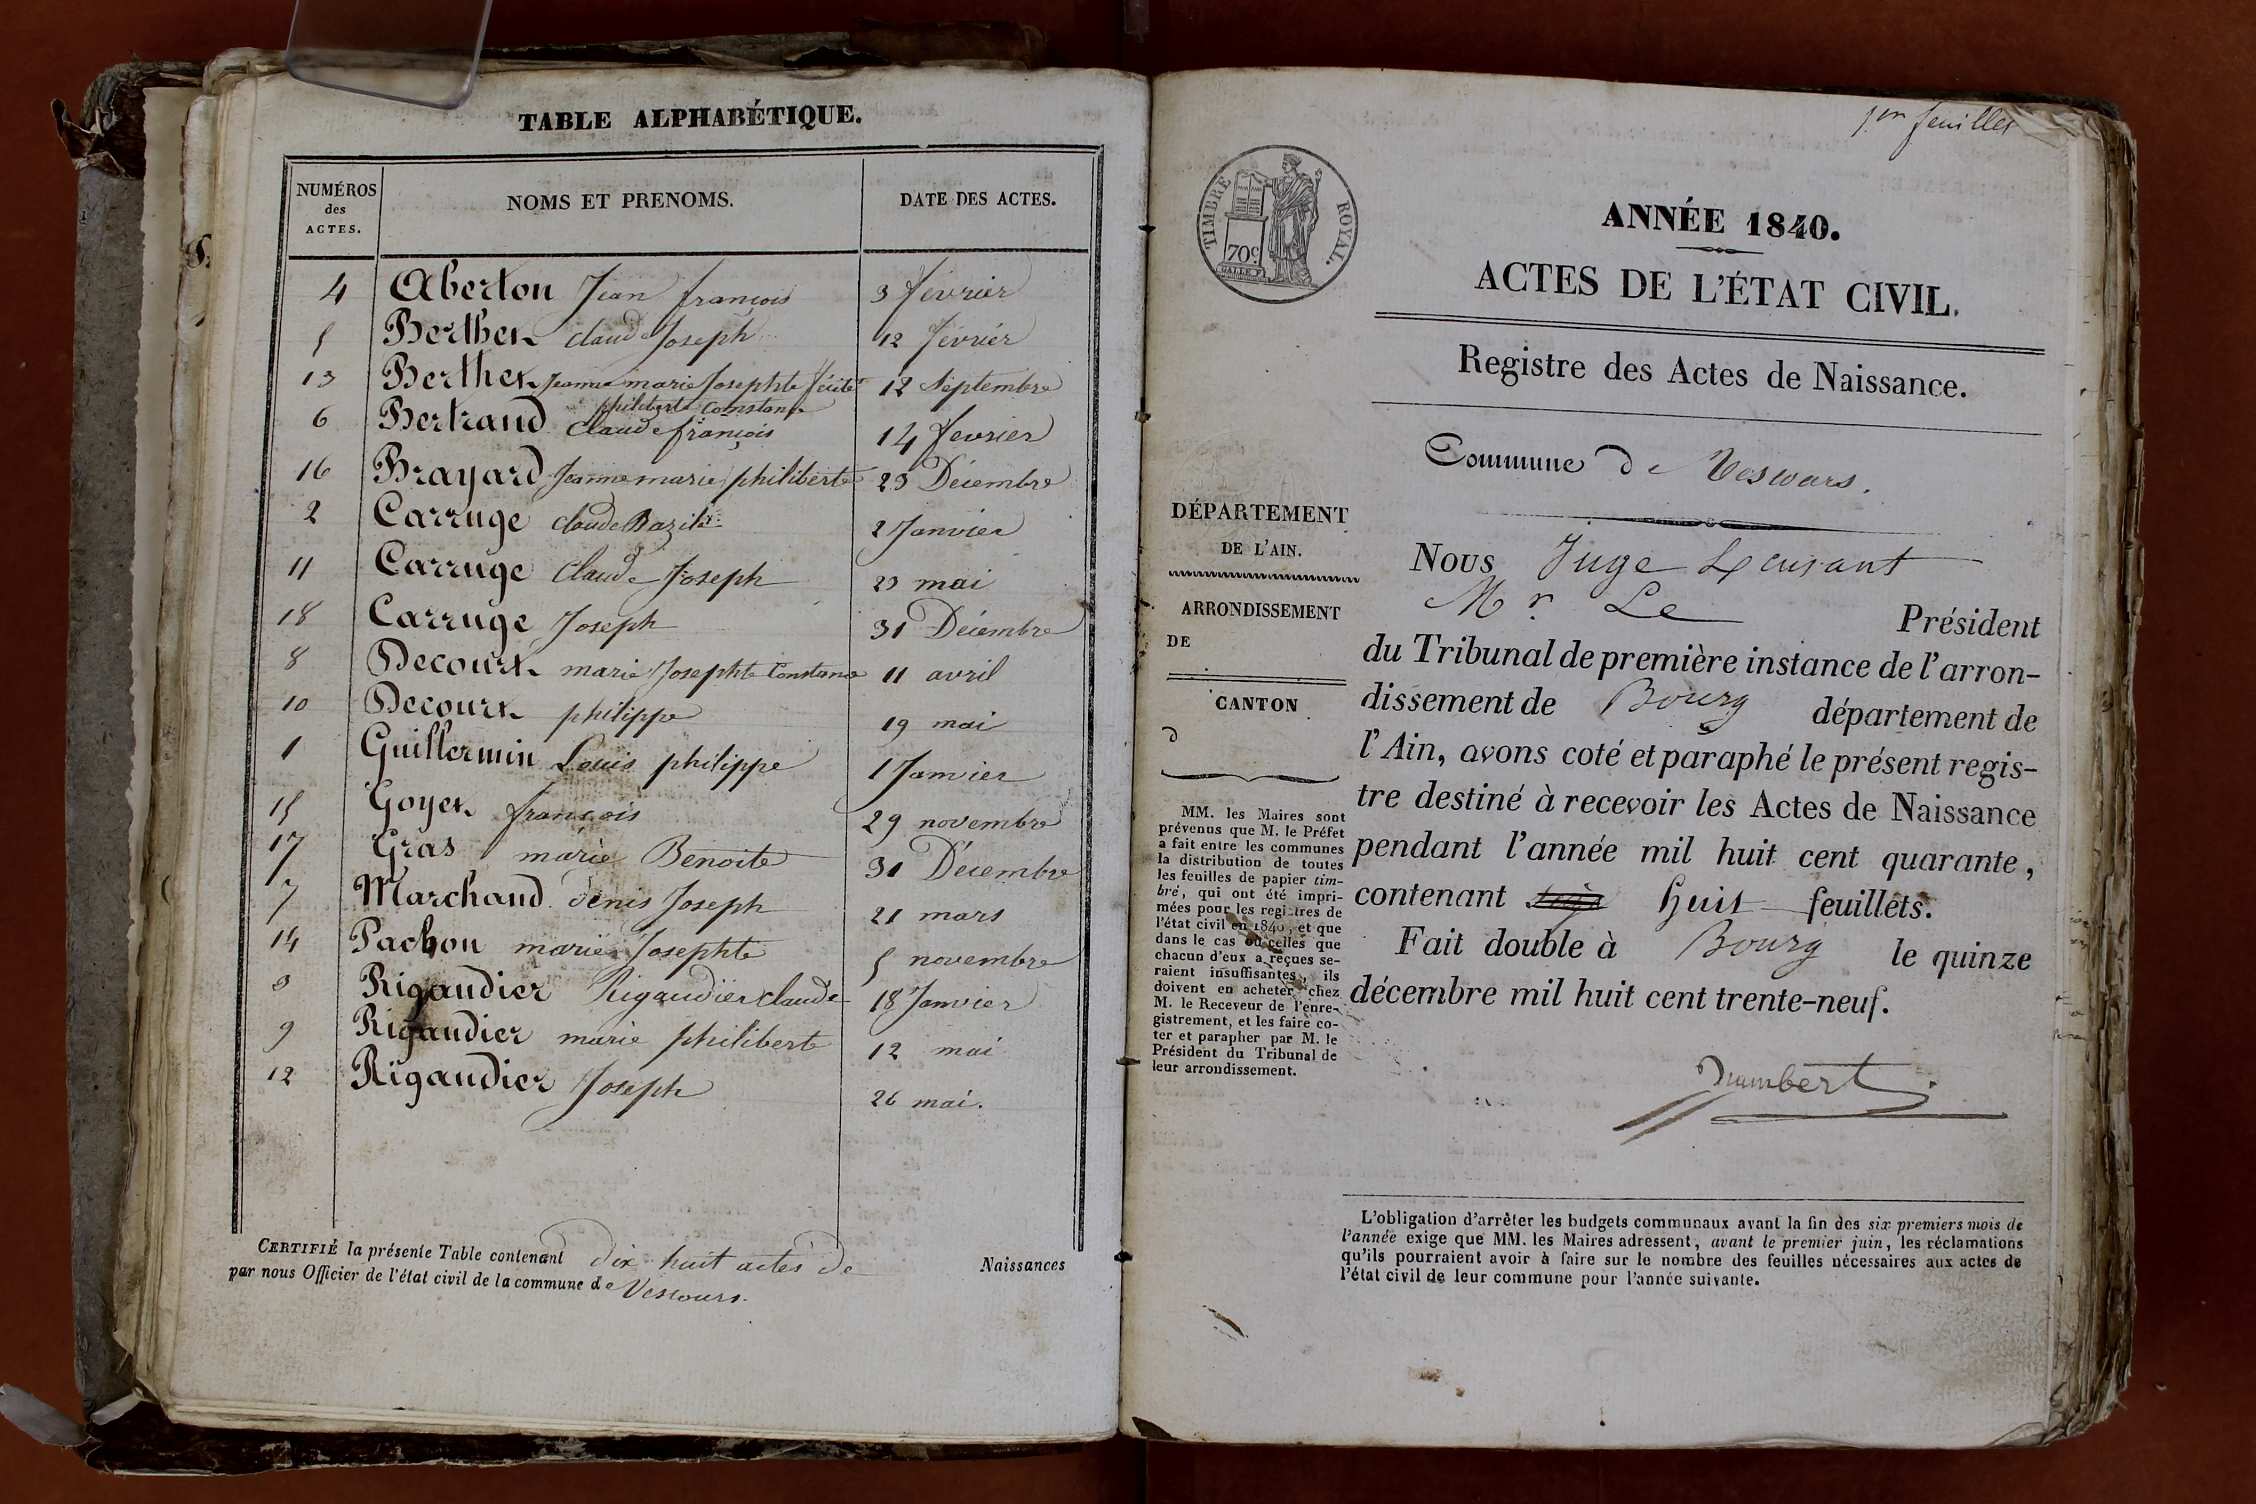 TABLE ALPHABÉTIQUE.
NUMÉROS des ACTES. NOMS ET PRENOMS. DATE DES ACTES.
4 Aberton Jean françois 3 février
5 Berthet claude Joseph 12 février
13 Berthet Jeanne marie Josephte félicité 12 Septembre
philiberte Constance
6 Bertrand Claude françois 14 fevrier
16 Brayard Jeanne marie philiberte 23 Décembre
2 Carruge claude Bazile 2 Janvier
11 Carruge Claude Joseph 23 mai
18 Carruge Joseph 31 Décembre
8 Decourt marie Josephte Constance 11 avril
10 Decourt philippe 19 mai
1 Guillermin Louis philippe 1 Janvier
15 Goyet françois 29 novembre
17 Gras marie Benoite 31 Décembre
7 Marchand denis Joseph 21 mars
14 Pachon marie Josephte 5 novembre
3 Rigaudier Rigaudier claude 18 Janvier
9 Rigaudier marie philiberte 12 mai
12 Rigaudier Joseph 26 mai.
CERTIFIÉ la présente Table contenant dix huit actes de Naissances
par nous Officier de l'état civil de la commune de Vescours.
1er feuillet
TIMBRE ROYAL.
70c
ANNÉE 1840.
ACTES DE L'ÉTAT CIVIL.
Registre des Actes de Naissance.
Commune de Vescours.
DÉPARTEMENT
DE L'AIN.
ARRONDISSEMENT
DE
CANTON
d
MM. les Maires sont
prévenus que M. le Préfet
a fait entre les communes
la distribution de toutes
les feuilles de papier tim-
bré, qui ont été impri-
mées pour les registres de
l'état civil en 1840, et que
dans le cas où celles que
chacun d'eux a reçues se-
raient insuffisantes, ils
doivent en acheter chez
M. le Receveur de l'enre-
gistrement, et les faire co-
ter et parapher par M. le
Président du Tribunal de
leur arrondissement.
Nous Juge
Mr Le Président
du Tribunal de première instance de l'arron-
dissement de Bourg département de
l'Ain, avons coté et paraphé le présent regis-
tre destiné à recevoir les Actes de Naissance
pendant l'année mil huit cent quarante,
contenant huit feuillets.
Fait double à Bourg le quinze
décembre mil huit cent trente-neuf.
L'obligation d'arrêter les budgets communaux avant la fin des six premiers mois de
l'année exige que MM. les Maires adressent, avant le premier juin, les réclamations
qu'ils pourraient avoir à faire sur le nombre des feuilles nécessaires aux actes de
l'état civil de leur commune pour l'année suivante.